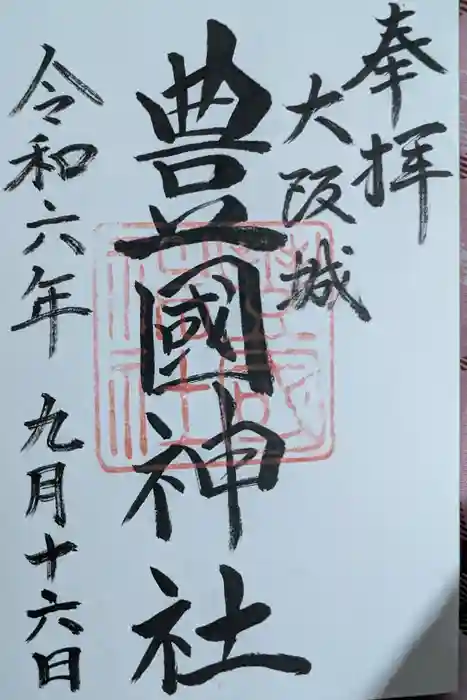 奉拝
大阪城
豊國神社
令和六年九月十六日